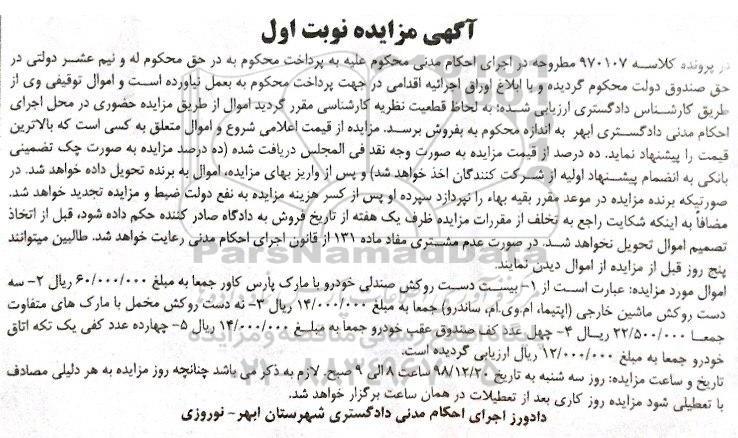 آگهی مزایده نوبت اول
در پرونده کلاسه ۹۷۰۱۰۷ مطروحه در اجرای احکام مدنی محکوم علیه به پرداخت محکوم به در حق محکوم له و نیم عشر دولتی در
حق صندوق دولت محکوم گردیده و با ابلاغ اوراق اجرائیه اقدامی در جهت پرداخت محکوم به بعمل نیاورده است و اموال توقیفی وی از
طریق کارشناس دادگستری ارزیابی شده؛ به لحاظ قطعیت نظریه کارشناسی مقرر گردید اموال از طریق مزایده حضوری در محل اجرای
احکام مدنی دادگستری ابهر به اندازه محکوم به بفروش برسد. مزایده از قیمت اعلامی شروع و اموال متعلق به کسی است که بالاترین
قیمت را پیشنهاد نماید. ده درصد از قیمت مزایده به صورت وجه نقد فی المجلس دریافت شده (ده درصد مزایده به صورت چک تضمینی
بانکی به انضمام پیشنهاد اولیه از شرکت کنندگان اخذ خواهد شد) و پس از واریز بهای مزایده، اموال به برنده تحویل داده خواهد شد. در
صورتیکه برنده مزایده در موعد مقرر بقیه بهاء را نپردازد سپرده او پس از کسر هزینه مزایده به نفع دولت ضبط و مزایده تجدید خواهد شد.
مضافاً به اینکه شکایت راجع به تخلف از مقررات مزایده ظرف یک هفته از تاریخ فروش به دادگاه صادر کننده حکم داده شود، قبل از اتخاذ
تصمیم اموال تحویل نخواهد شد. در صورت عدم مشتری مفاد ماده ۱۳۱ از قانون اجرای احکام مدنی رعایت خواهد شد. طالبین میتوانند
پنج روز قبل از مزایده از اموال دیدن نمایند.
اموال مورد مزایده: عبارت است از ۱- بیست دست روکش صندلی خودرو با مارک پارس کاور جمعا به مبلغ ۶۰/۰۰۰/۰۰۰ ریال ۲- سه
دست روکش ماشین خارجی (اپتیما، ام.وی.ام، ساندرو) جمعا به مبلغ ۱۴/۰۰۰/۰۰۰ ریال ۳- نه دست روکش مخمل با مارک های متفاوت
جمعا ۲۲/۵۰۰/۰۰۰ ریال ۴- چهل عدد کف صندوق عقب خودرو جمعا به مبلغ ۱۴/۰۰۰/۰۰۰ ریال ۵- چهارده عدد کفی یک تکه اتاق
خودرو جمعا به مبلغ ۱۲/۰۰۰/۰۰۰ ریال ارزیابی گردیده است.
تاریخ و ساعت مزایده: روز سه شنبه به تاریخ ۹۸/۱۲/۲۰ ساعت ۸ الی ۹ صبح. لازم به ذکر می باشد چنانچه روز مزایده به هر دلیلی مصادف
با تعطیلی شود مزایده روز کاری بعد از تعطیلات در همان ساعت برگزار خواهد شد.
دادورز اجرای احکام مدنی دادگستری شهرستان ابهر- نوروزی
ParsNamadData